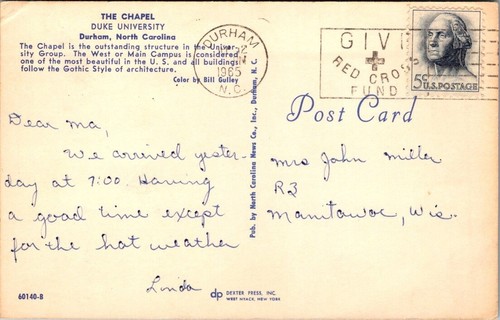 THE CHAPEL
DUKE UNIVERSITY
Durham, North Carolina
The Chapel is the outstanding structure in the Univer-
sity Group. The West or Main Campus is considered
one of the most beautiful in the U. S. and all buildings
follow the Gothic Style of architecture.
Color by Bill Gulley
Dear Ma,
We arrived yester-
day at 7:00. Having
a good time except
for the hot weather
Linda
60140-B
Pub. by North Carolina News Co., Inc., Durham, N. C.
dp DEXTER PRESS, INC.
WEST NYACK, NEW YORK
DURHAM
1965
N.C.
GIVE
RED CROSS
FUND
5c U.S. POSTAGE
Post Card
Mrs John Miller
R3
Manitowoc, Wis.